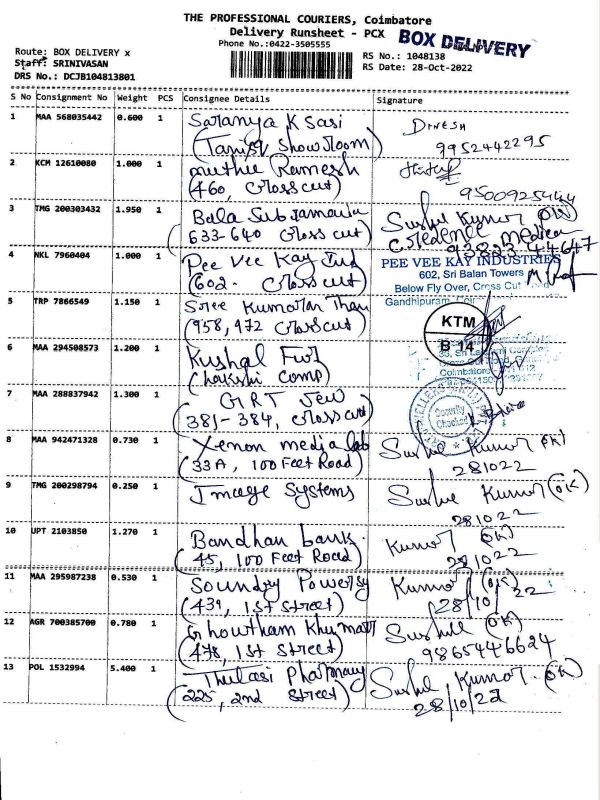 THE PROFESSIONAL COURIERS, Coimbatore
Delivery Runsheet - PCX
BOX DELIVERY
Phone No.:0422-3505555
Route: BOX DELIVERY x
Staff: SRINIVASAN
DRS No.: DCJB104813801
RS No.: 1048138
RS Date: 28-Oct-2022
S No Consignment No Weight PCS Consignee Details Signature
1 MAA 568035442 0.600 1 Saranya K Sasi DINESH
(Tanisq Showroom) 9952442295
2 KCM 12610080 1.000 1 Muthu Ramesh
(460, Cross cut) 9500925444
3 TMG 200303432 1.950 1 Bala Subramania Sushil Kumar (OK)
(633-640 Cross cut) Credence Medica
9382344647
4 NKL 7960404 1.000 1 Pee Vee Kay Ind PEE VEE KAY INDUSTRIES
(602. Cross cut) 602, Sri Balan Towers
Below Fly Over, Cross Cut
Gandhipuram,
5 TRP 7866549 1.150 1 Sree Kumaran Than
(958, 972 Cross cut) KTM
B 14
6 MAA 294508573 1.200 1 Kushal Fur
(Chaukshi Comp) Coimbatore
7 MAA 288837942 1.300 1 GRT Jew
(381-384, Cross cut)
8 MAA 942471328 0.730 1 Xenon media lab Sushil Kumar (OK)
(33A, 100 Feet Road) 281022
9 TMG 200298794 0.250 1 Image Systems Sushil Kumar (OK)
281022
10 UPT 2103850 1.270 1 Bandhan bank Kumar (OK)
(45, 100 Feet Road) 281022
11 MAA 295987238 0.530 1 Soundry Powersy Kumar (OK)
(439, 1st Street) 28/10/22
12 AGR 700385700 0.780 1 Ghowtham Khumar Sushil (OK)
(478, 1st Street) 9865446624
13 POL 1532994 5.400 1 Thulasi Pharmacy Sushil Kumar (OK)
(225, 2nd Street) 28/10/22